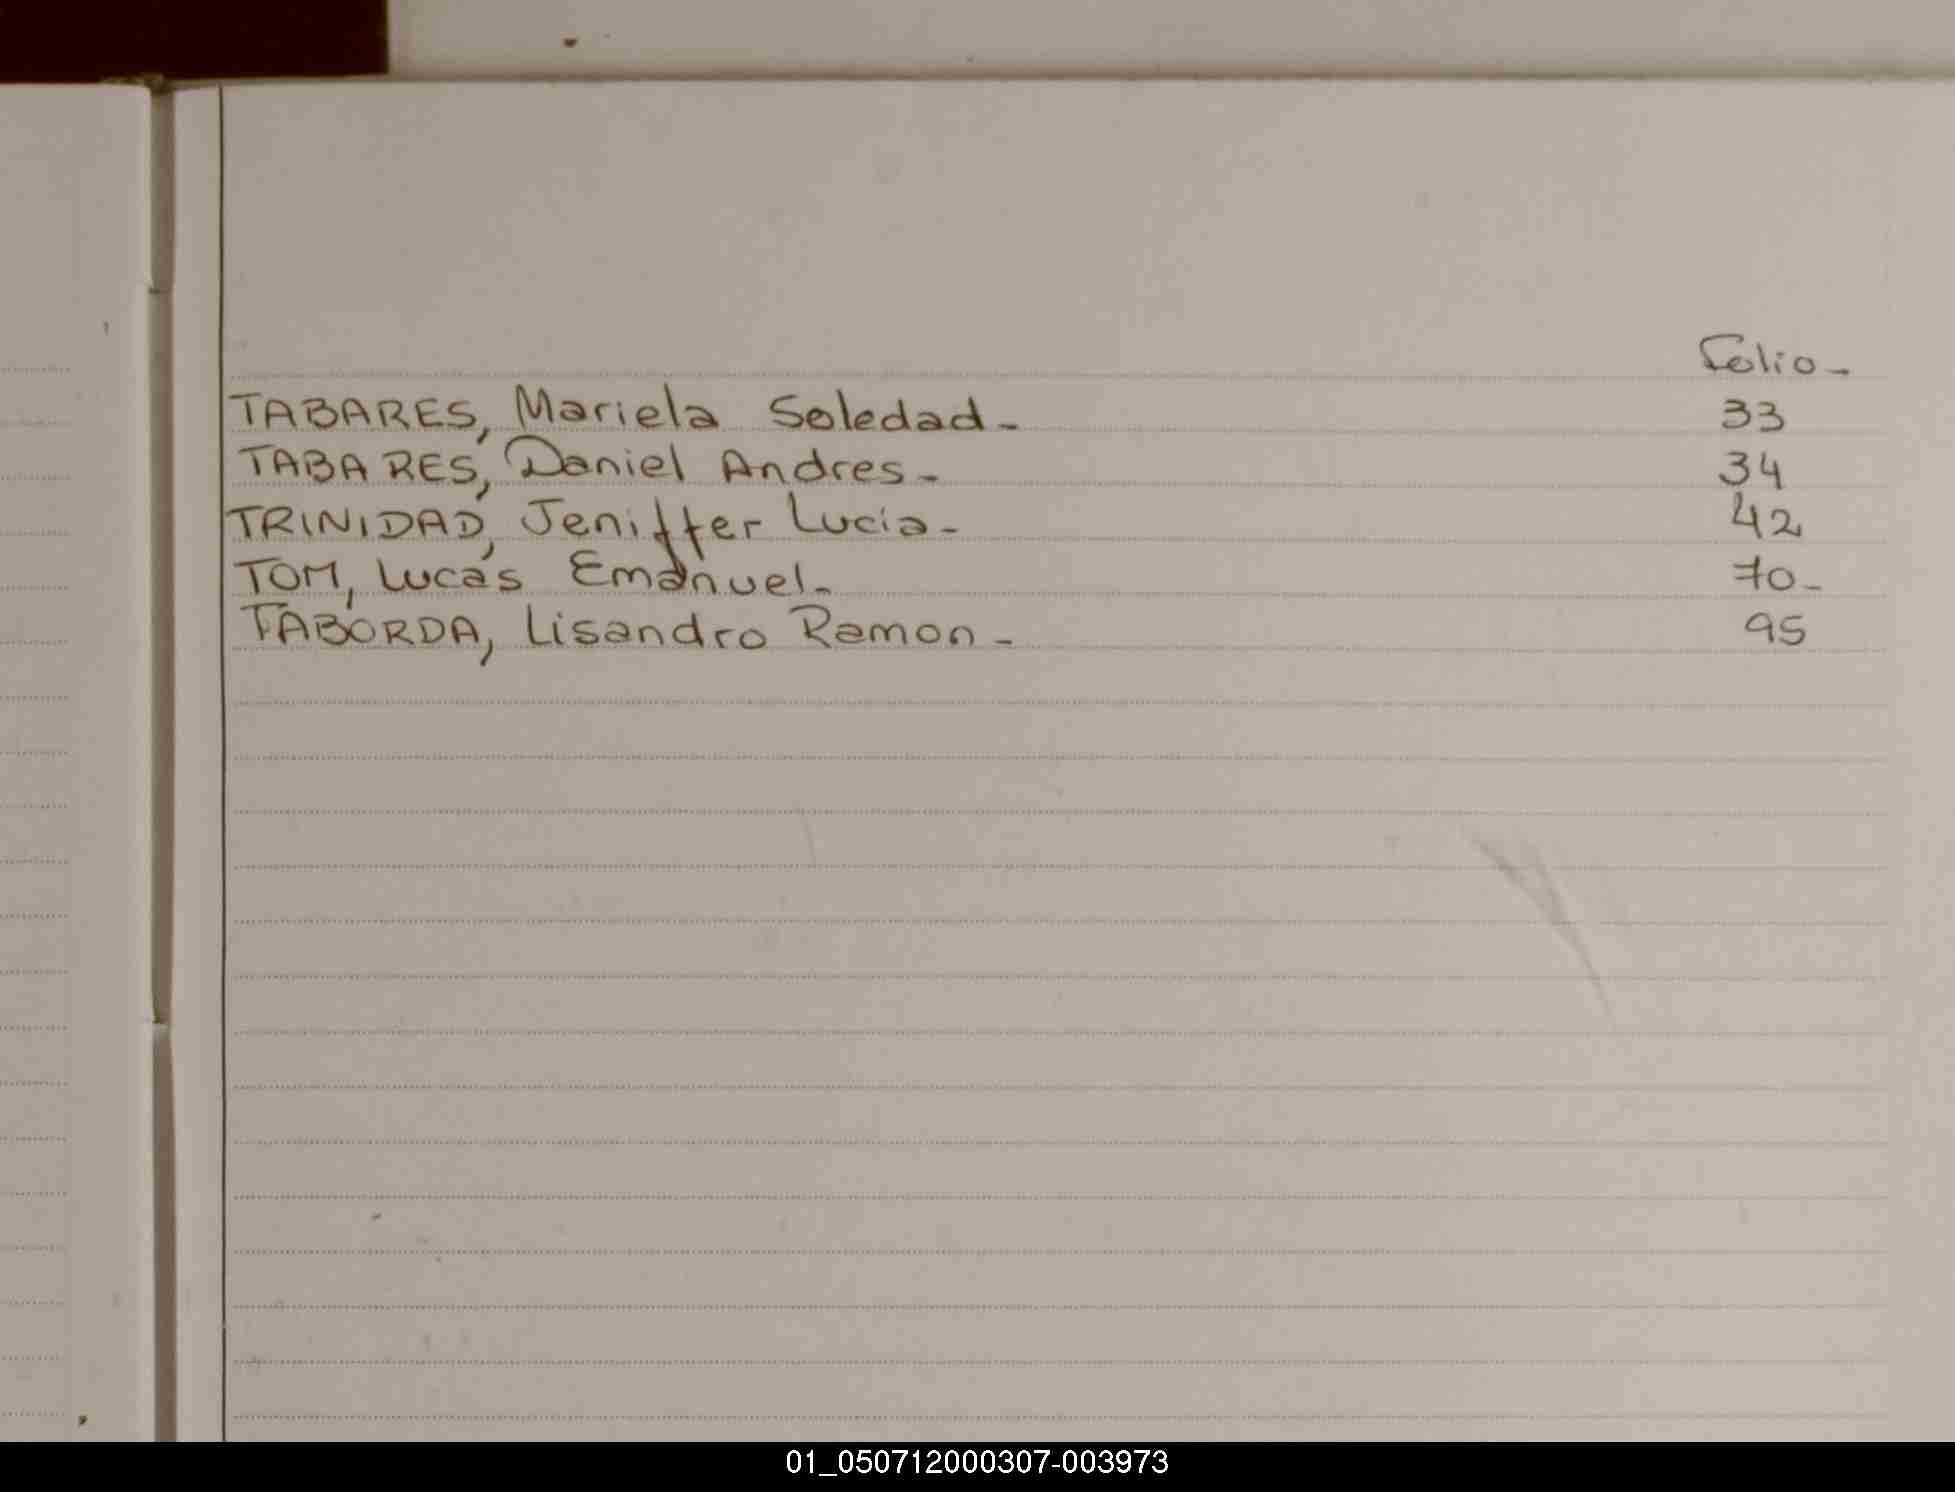 Folio -
TABARES, Mariela Soledad - 33
TABARES, Daniel Andres - 34
TRINIDAD, Jeniffer Lucia - 42
TOM, Lucas Emanuel - 70 -
TABORDA, Lisandro Ramon - 95
01_050712000307-003973